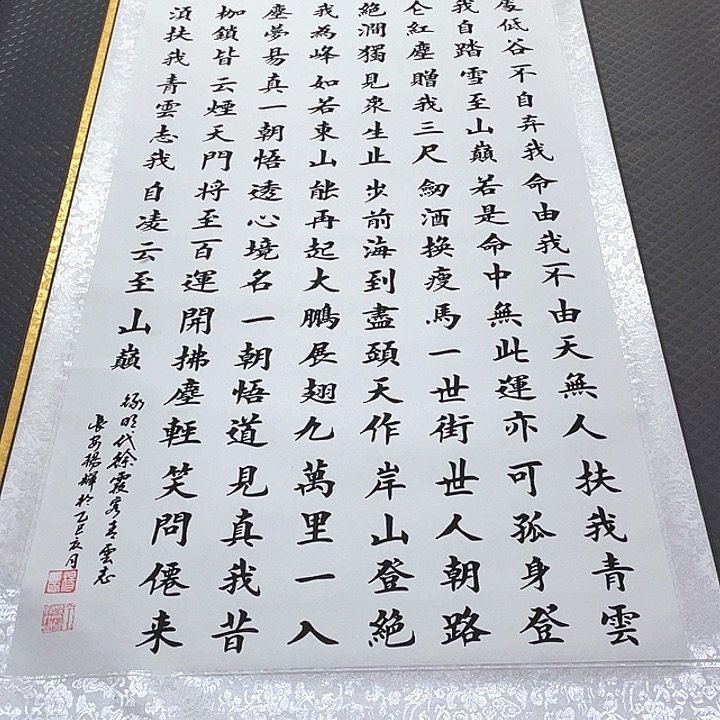 處低谷不自弃我命由我不由天無人扶我青雲
我自踏雪至山巔若是命中無此運亦可孤身登
仑紅塵贈我三尺劍酒換瘦馬一世街世人朝路
絕澗獨見衆生止步前海到盡頭天作岸山登絕
我為峰如若東山能再起大鵬展翅九萬里一入
塵夢易真一朝悟透心境名一朝悟道見真我昔
枷鎖皆云煙天門將至百運開拂塵輕笑問僊来
須扶我青雲志我自凌云至山巔
錄明代徐霞客青雲志
長安楊輝於乙巳夏月